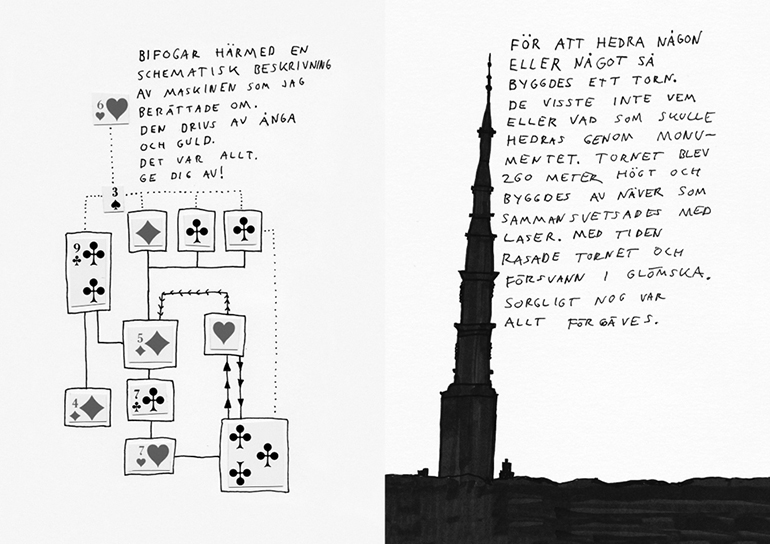 BIFOGAR HÄRMED EN
SCHEMATISK BESKRIVNING
AV MASKINEN SOM JAG
BERÄTTADE OM.
DEN DRIVS AV ÅNGA
OCH GULD.
DET VAR ALLT.
GE DIG AV!
6
3
9
5
4
7
7
FÖR ATT HEDRA NÅGON
ELLER NÅGOT SÅ
BYGGDES ETT TORN.
DE VISSTE INTE VEM
ELLER VAD SOM SKULLE
HEDRAS GENOM MONU-
MENTET. TORNET BLEV
260 METER HÖGT OCH
BYGGDES AV NÄVER SOM
SAMMANSVETSADES MED
LASER. MED TIDEN
RASADE TORNET OCH
FÖRSVANN I GLÖMSKA.
SORGLIGT NOG VAR
ALLT FÖRGÄVES.